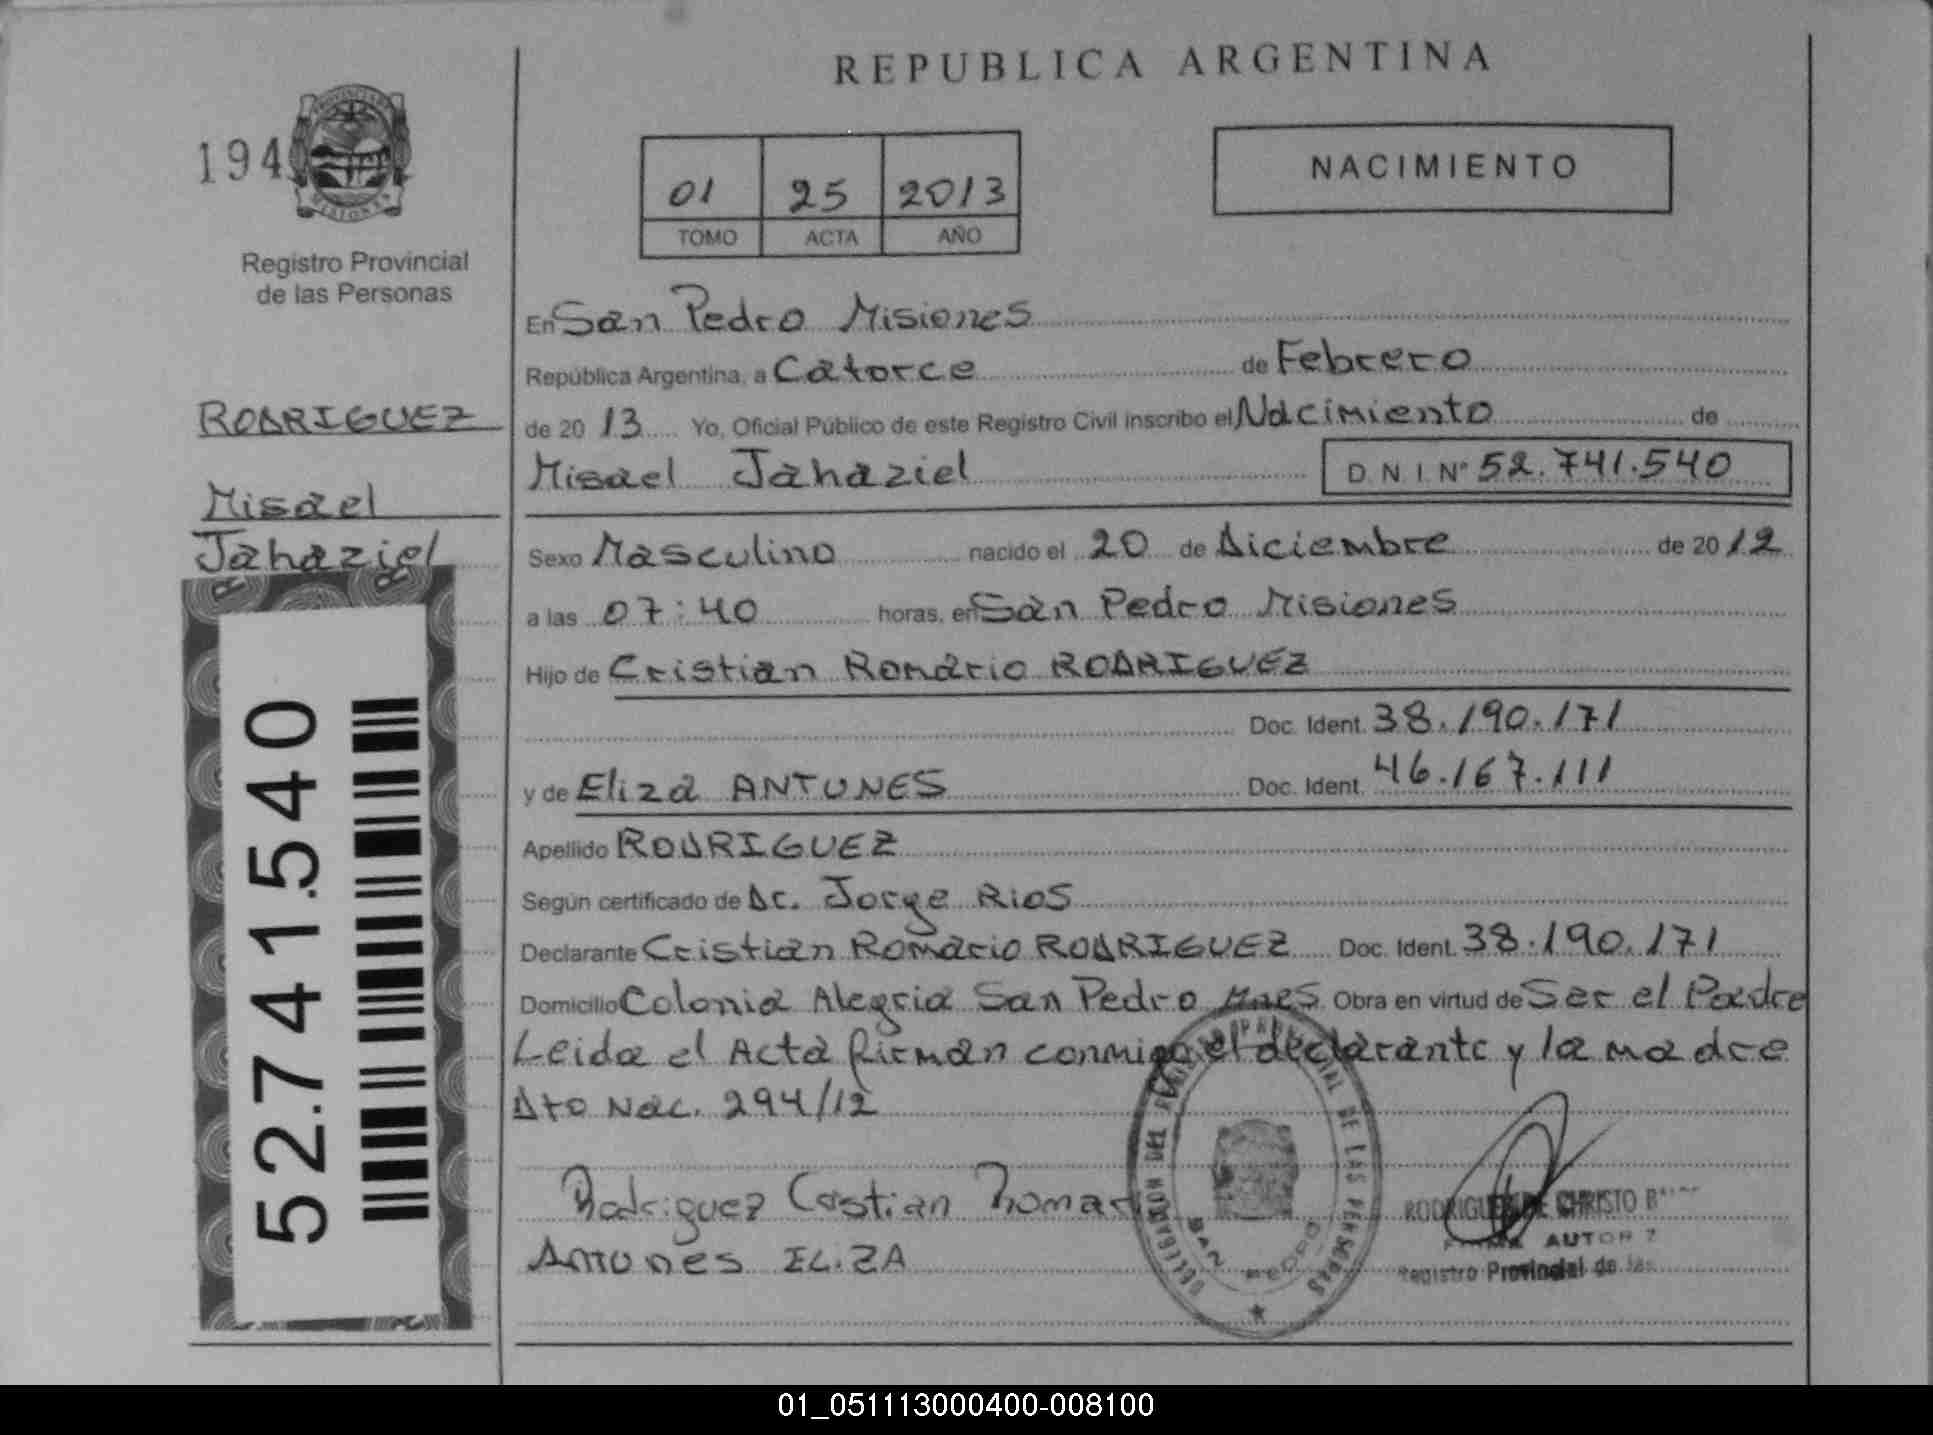 REPUBLICA ARGENTINA
194
PROVINCIA DE MISIONES
Registro Provincial
de las Personas
01 25 2013
TOMO ACTA AÑO
NACIMIENTO
RODRIGUEZ
Misael
Jahaziel
52.741.540
En San Pedro Misiones
República Argentina, a Catorce de Febrero
de 2013 Yo, Oficial Público de este Registro Civil inscribo el Nacimiento de
Misael Jahaziel D.N.I. Nº 52.741.540
Sexo Masculino nacido el 20 de Diciembre de 2012
a las 07:40 horas, en San Pedro Misiones
Hijo de Cristian Romario RODRIGUEZ
Doc. Ident. 38.190.171
y de Eliza ANTUNES Doc. Ident. 46.167.111
Apellido RODRIGUEZ
Según certificado de Dr. Jorge Rios
Declarante Cristian Romario RODRIGUEZ Doc. Ident. 38.190.171
Domicilio Colonia Alegria San Pedro Mnes Obra en virtud de Ser el Padre
Leida el Acta firman conmigo el declarante y la madre
Dto Nac. 294/12
Rodriguez Cristian Romar
Antunes ELiZA
DELEGACION DEL REGISTRO PROVINCIAL DE LAS PERSONAS
SAN PEDRO
RODRIGUEZ DE CHRISTO
FIRMA AUTOR
Registro Provincial de las
01_051113000400-008100